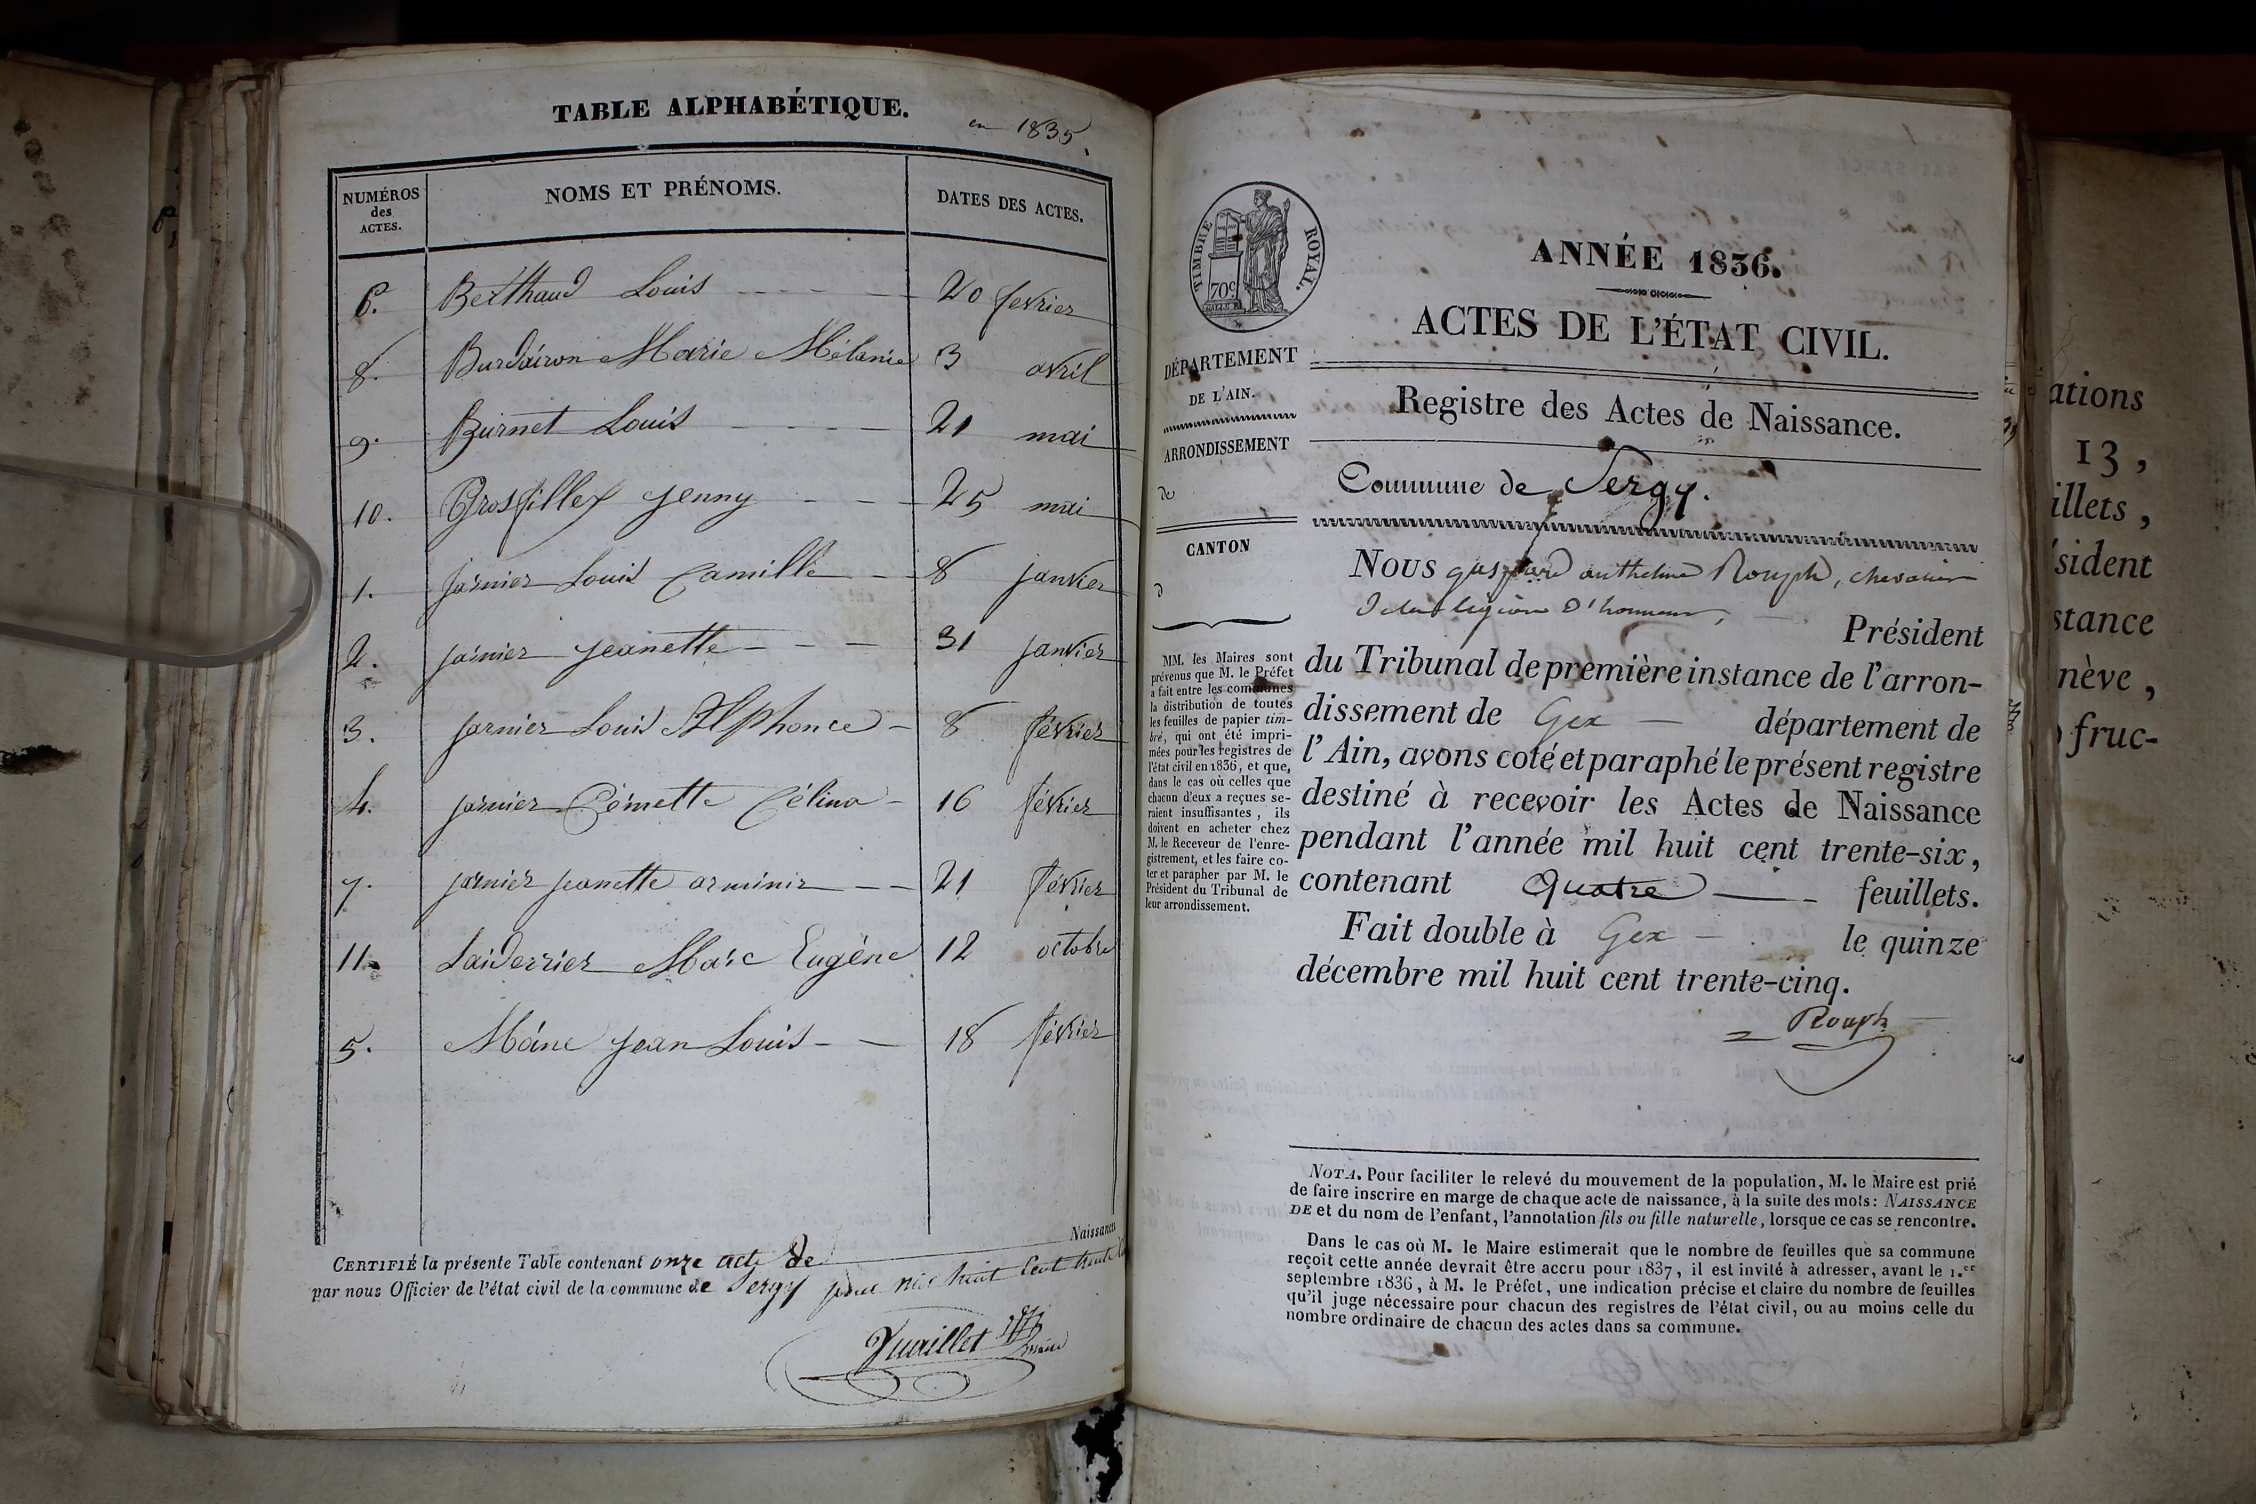 TABLE ALPHABÉTIQUE.
en 1835.
NUMÉROS
des
ACTES.
NOMS ET PRÉNOMS.
DATES DES ACTES.
6. Berthaud Louis 20 fevrier
8. Burdairon Marie Mélanie 3 avril
9. Burnet Louis 21 mai
10. Grosfillex jenny 25 mai
1. jarnier Louis Camille 8 janvier
2. jarnier jeanette 31 janvier
3. jarnier Louis Alphonce 8 février
4. jarnier Célina 16 février
7. jarnier jeanette 21 février
11. Laiderrier Marc Eugéne 12 octobre
5. jean Louis 18 février
Naissances
CERTIFIÉ la présente Table contenant onze acte de
par nous Officier de l'état civil de la commune de Sergy mil huit Cent trente
maire
TIMBRE ROYAL.
70c
ANNÉE 1836.
ACTES DE L'ÉTAT CIVIL.
DÉPARTEMENT
DE L'AIN.
ARRONDISSEMENT
de
CANTON
d
Registre des Actes de Naissance.
Commune de Sergy.
Nous Rouph, chevalier
de la légion d'honneur,
Président
du Tribunal de première instance de l'arron-
dissement de Gex département de
l'Ain, avons coté et paraphé le présent registre
destiné à recevoir les Actes de Naissance
pendant l'année mil huit cent trente-six,
contenant quatre feuillets.
Fait double à Gex le quinze
décembre mil huit cent trente-cinq.
Rouph
MM. les Maires sont
prévenus que M. le Préfet
a fait entre les communes
la distribution de toutes
les feuilles de papier tim-
bré, qui ont été impri-
mées pour les registres de
l'état civil en 1836, et que,
dans le cas où celles que
chacun d'eux a reçues se-
raient insuffisantes, ils
doivent en acheter chez
M. le Receveur de l'enre-
gistrement, et les faire co-
ter et parapher par M. le
Président du Tribunal de
leur arrondissement.
NOTA. Pour faciliter le relevé du mouvement de la population, M. le Maire est prié
de faire inscrire en marge de chaque acte de naissance, à la suite des mots: NAISSANCE
DE et du nom de l'enfant, l'annotation fils ou fille naturelle, lorsque ce cas se rencontre.
Dans le cas où M. le Maire estimerait que le nombre de feuilles que sa commune
reçoit cette année devrait être accru pour 1837, il est invité à adresser, avant le 1.er
septembre 1836, à M. le Préfet, une indication précise et claire du nombre de feuilles
qu'il juge nécessaire pour chacun des registres de l'état civil, ou au moins celle du
nombre ordinaire de chacun des actes dans sa commune.
ations
13,
illets,
sident
stance
nève,
fruc-